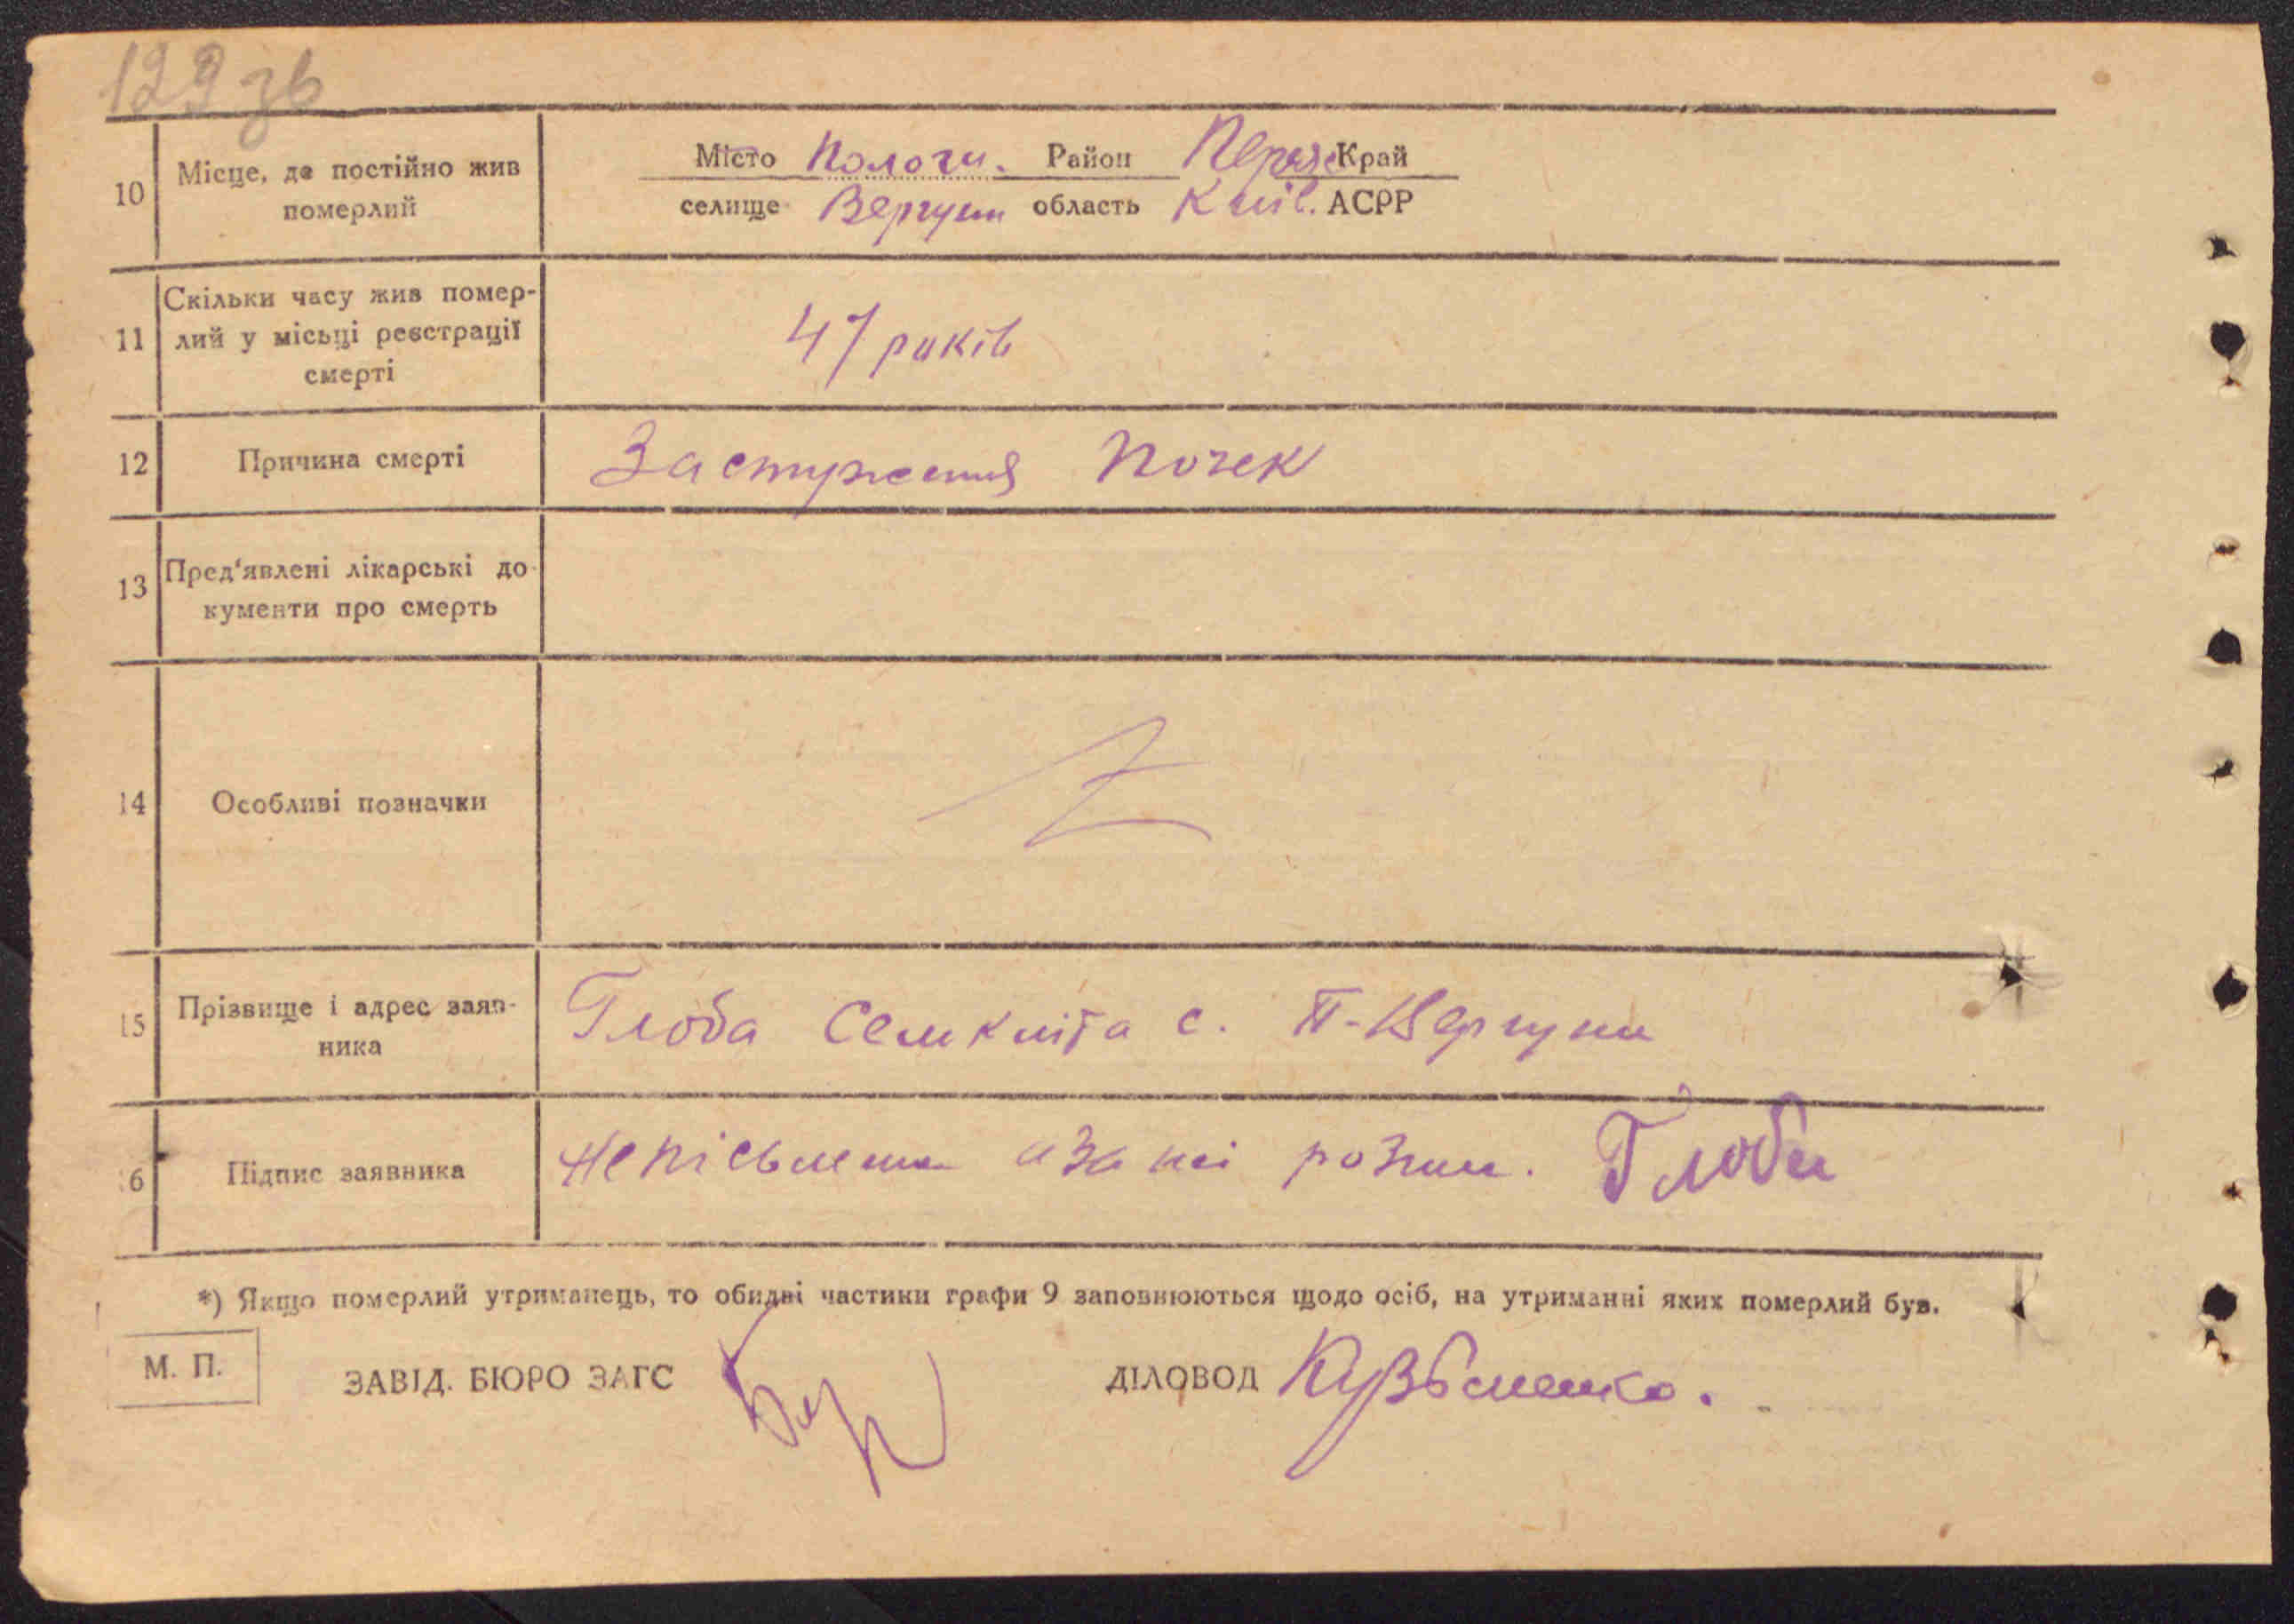 129 зв
10 Місце, де постійно жив померлий
Місто Пологи. Район Переяс Край
селище Вергуни область Київ. АСРР
11 Скільки часу жив помер-
лий у місьці реєстрації
смерті
47 років
12 Причина смерті Застуження почек
13 Пред'явлені лікарські до-
кументи про смерть
14 Особливі позначки
15 Прізвище і адрес заяв-
ника
Глоба с. П-Вергуни
16 Підпис заявника Неписьмена а за неї розпис. Глоба
*) Якщо померлий утриманець, то обидві частини графи 9 заповнюються щодо осіб, на утриманні яких померлий був.
М. П.
ЗАВІД. БЮРО ЗАГС
ДІЛОВОД Кузьменко.